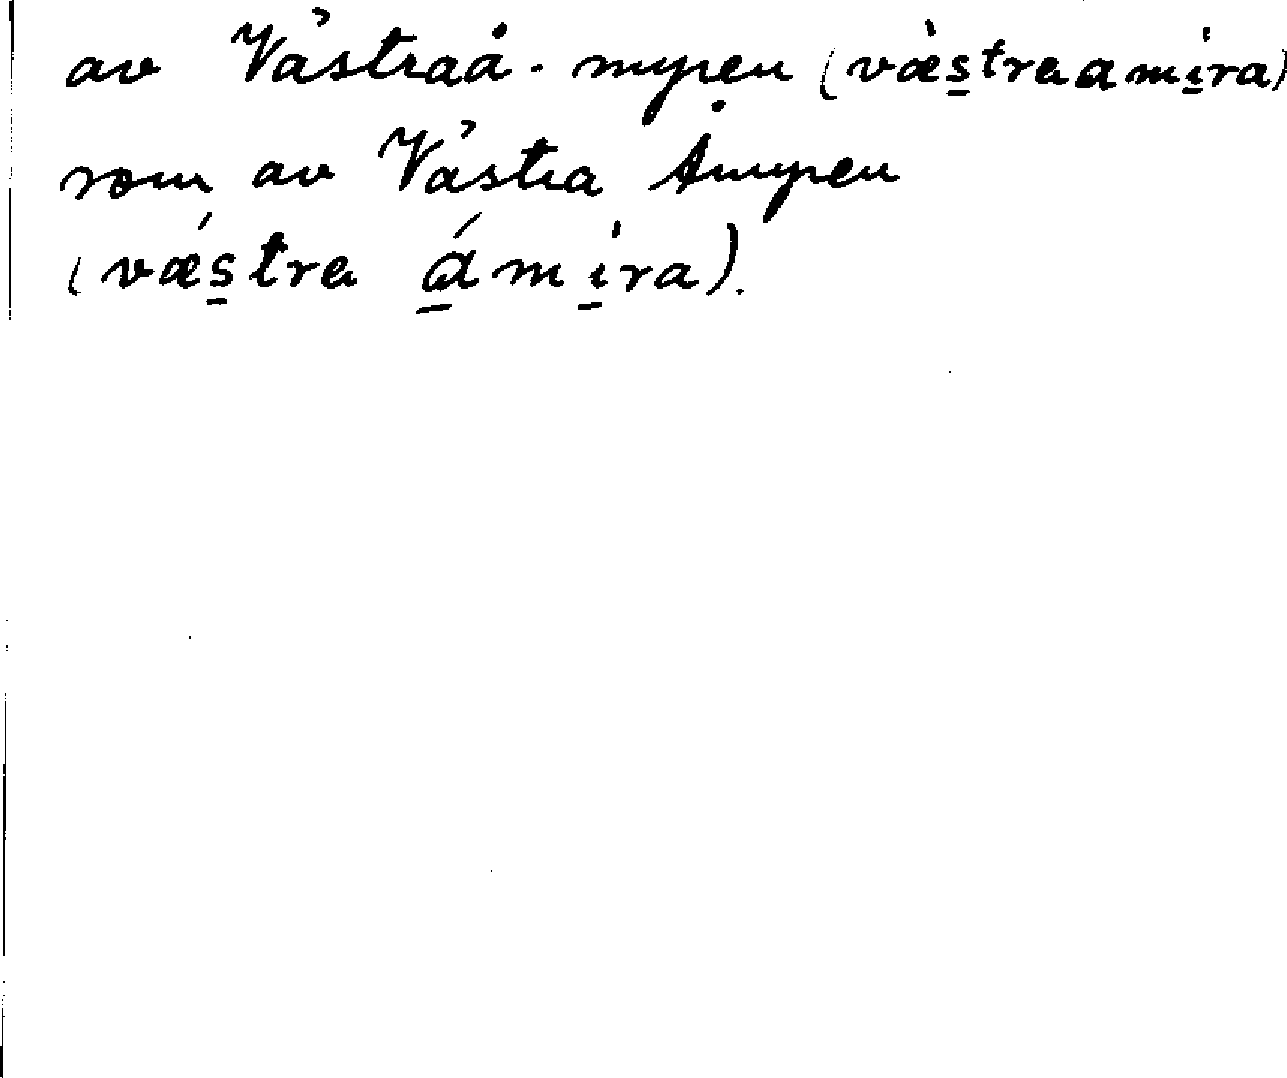 av Västraå-myren (væ̀s̱treami̱ra)
som av Västra Åmyren
(vǽs̱tre á̱mi̱ra).